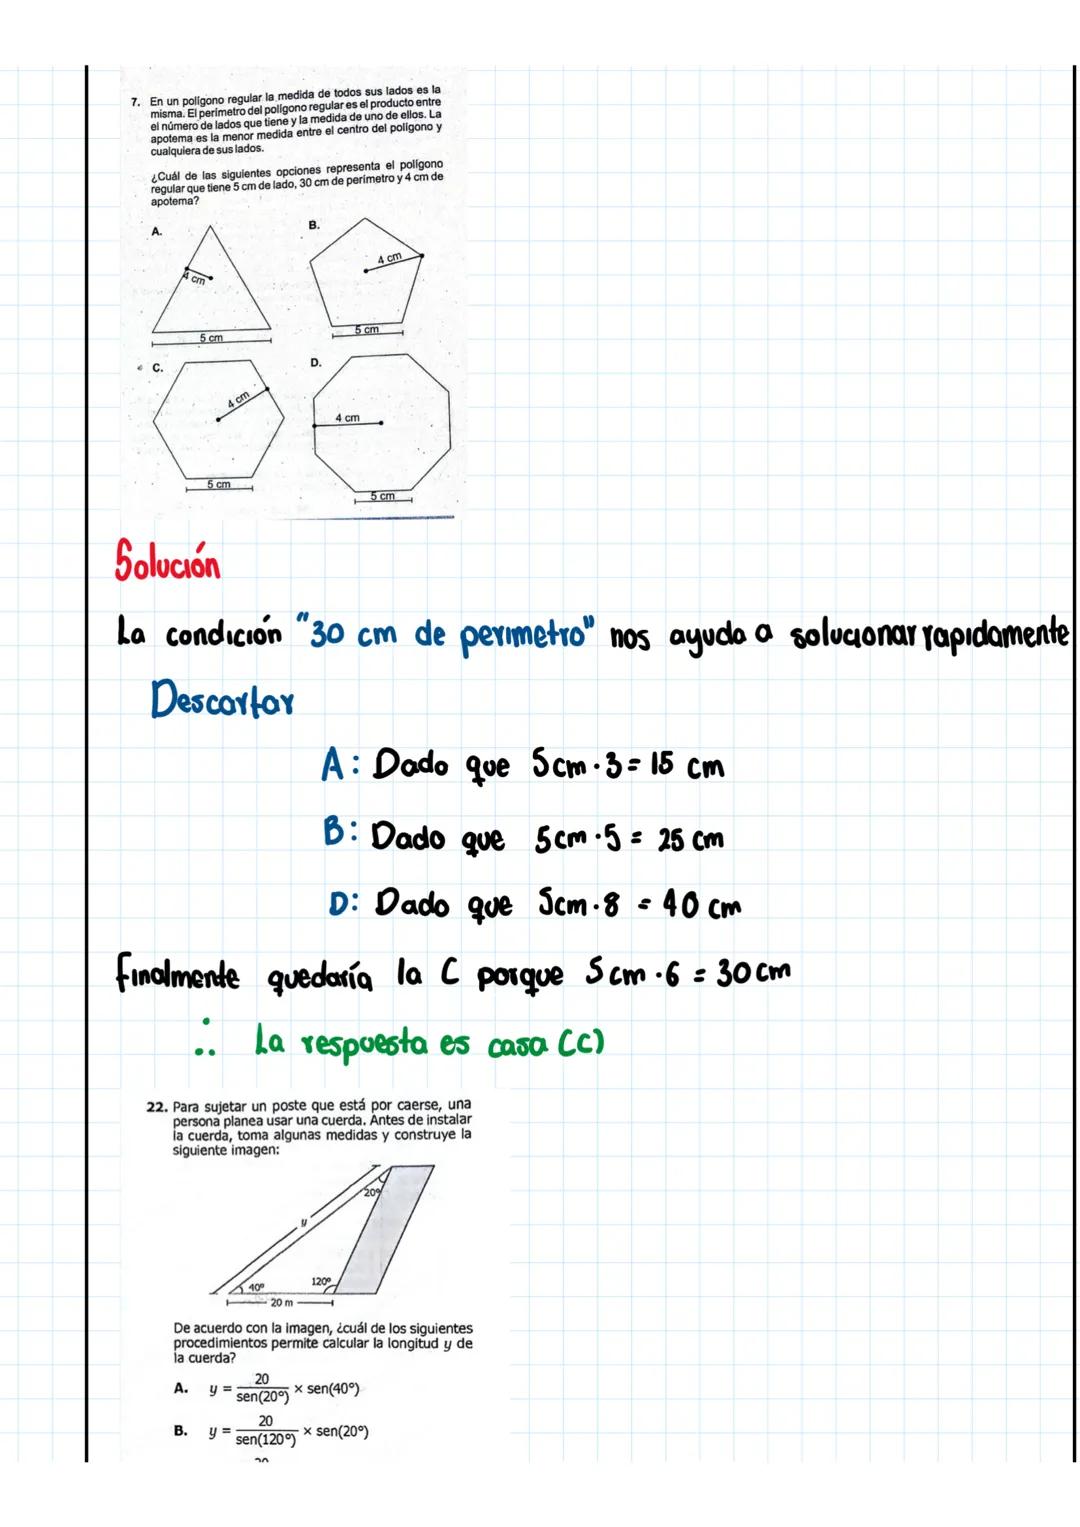 7. En un polígono regular la medida de todos sus lados es la
misma. El perímetro del polígono regular es el producto entre
el número de lados que tiene y la medida de uno de ellos. La
apotema es la menor medida entre el centro del polígono y
cualquiera de sus lados.
¿Cuál de las siguientes opciones representa el polígono
regular que tiene 5 cm de lado, 30 cm de perímetro y 4 cm de
apotema?
A.
4 cm
5 cm
B.
4 cm
5 cm
C.
4 cm
5 cm
D.
4 cm
5 cm
Solución
La condición "30 cm de perimetro" nos ayuda a solucionar rapidamente
Descartar
A: Dado que 5cm · 3 = 15 cm
B: Dado que 5cm · 5 = 25 cm
D: Dado que 5cm · 8 = 40 cm
Finalmente quedaría la C porque 5 cm · 6 = 30 cm
∴ La respuesta es casa (C)
22. Para sujetar un poste que está por caerse, una
persona planea usar una cuerda. Antes de instalar
la cuerda, toma algunas medidas y construye la
siguiente imagen:
20º
y
40º
120º
20 m
De acuerdo con la imagen, ¿cuál de los siguientes
procedimientos permite calcular la longitud y de
la cuerda?
A. y = 20 / sen(20º) × sen(40º)
B. y = 20 / sen(120º) × sen(20º)